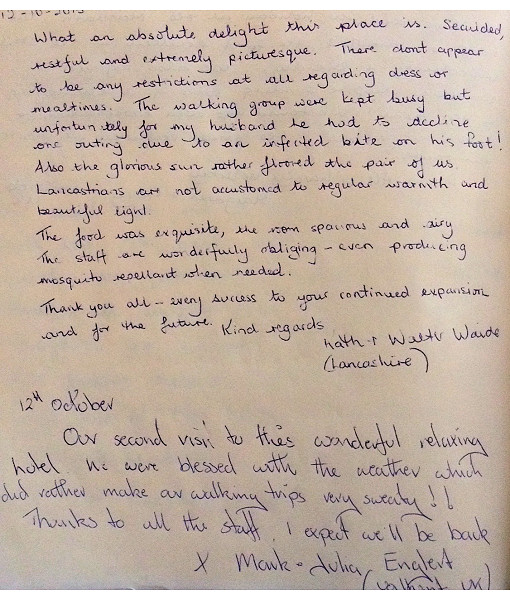 12-10-2015
What an absolute delight this place is. Secuided,
restful and extremely picturesque. There dont appear
to be any restrictions at all regarding dress or
mealtimes. The walking group were kept busy but
unfortunately for my husband he had to decline
one outing due to an infected bite on his foot!
Also the glorious sun rather floored the pair of us
Lancastrians are not accustomed to regular warmth and
beautiful light.
The food was exquisite, the room spacious and airy
The staff are wonderfully obliging - even producing
mosquito repellant when needed.
Thank you all - every success to your continued expansion
and for the future. Kind regards
Kath + Walter
(Lancashire)
12th October
Our second visit to this wonderful relaxing
hotel We were blessed with the weather which
did rather make our walking trips very sweaty!!
Thanks to all the staff. I expect we'll be back
X Mark + Julia Englert